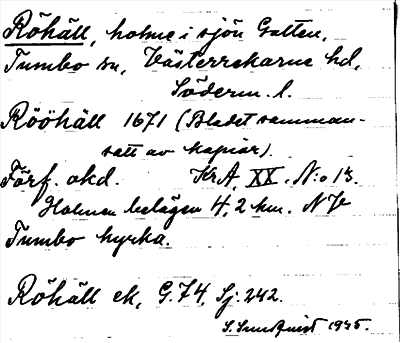 Röhäll, holme i sjön Gatten,
Tumbo sn, Västerrekarne hd,
Söderm. l.
Rööhäll 1671 (Bladet samman-
satt av kapior)
Förf. okd. KrA, XX. N:o 13.
Holmen belägen 4,2 km. N
Tumbo kyrka.
Röhäll ek, G.74, Sj. 242.
S. Sundquist 1935.